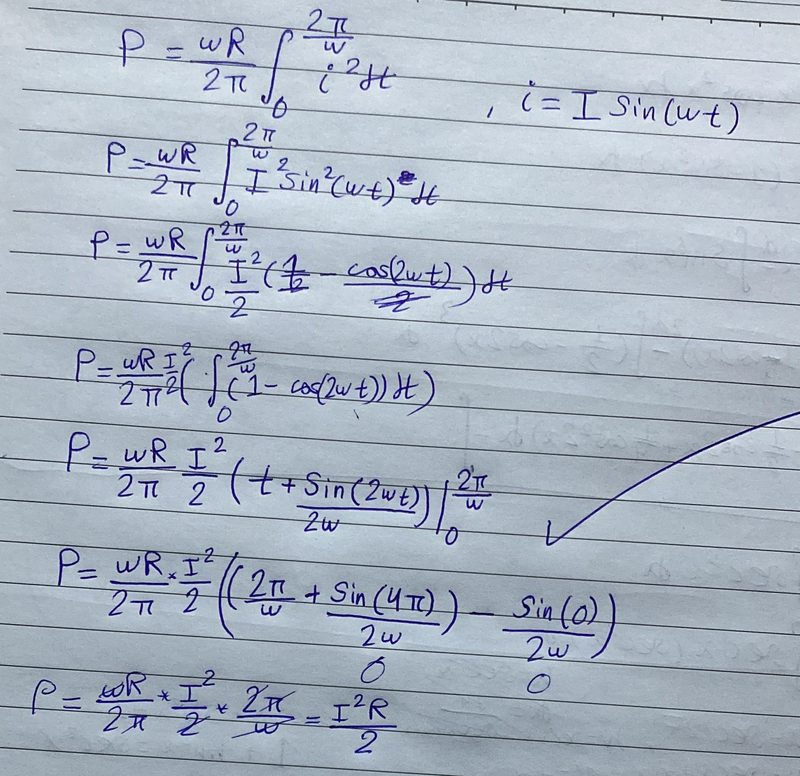 P = wR/2π ∫₀^(2π/w) i² dt , i = I Sin(wt)
P = wR/2π ∫₀^(2π/w) I² Sin²(wt) dt
P = wR/2π ∫₀^(2π/w) I²/2 (1 - cos(2wt)) dt
P = wR/2π I²/2 ( ∫₀^(2π/w) (1 - cos(2wt)) dt )
P = wR/2π I²/2 ( t + Sin(2wt)/2w ) |₀^(2π/w)
P = wR/2π * I²/2 ( ( 2π/w + Sin(4π)/2w ) - Sin(0)/2w )
0 0
P = wR/2π * I²/2 * 2π/w = I²R/2